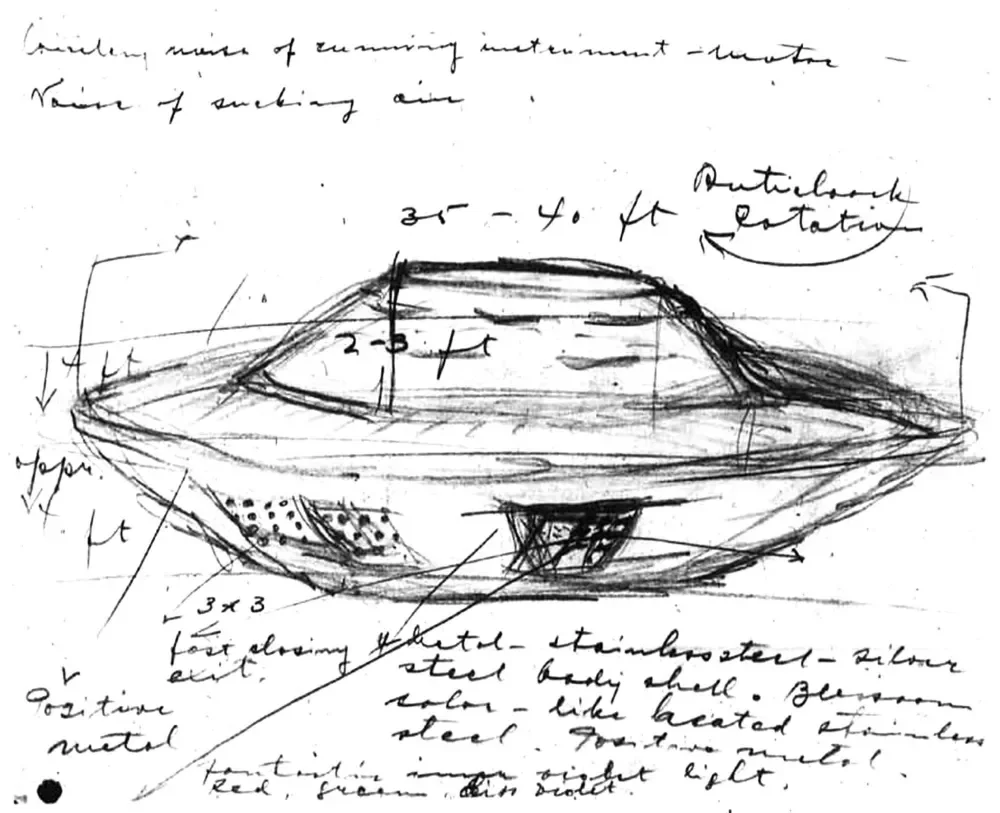 noise of running instrument - motor -
Noise of sucking air
Anticlock
Rotation
35 - 40 ft
2-3 ft
4 ft
appr.
4
ft
3 x 3
fast closing
exit.
Positive
metal
metal - stainless steel - silver
steel body shell.
color - like heated stainless
steel. Positive metal.
fantastic inner light,
Red, green, violet.